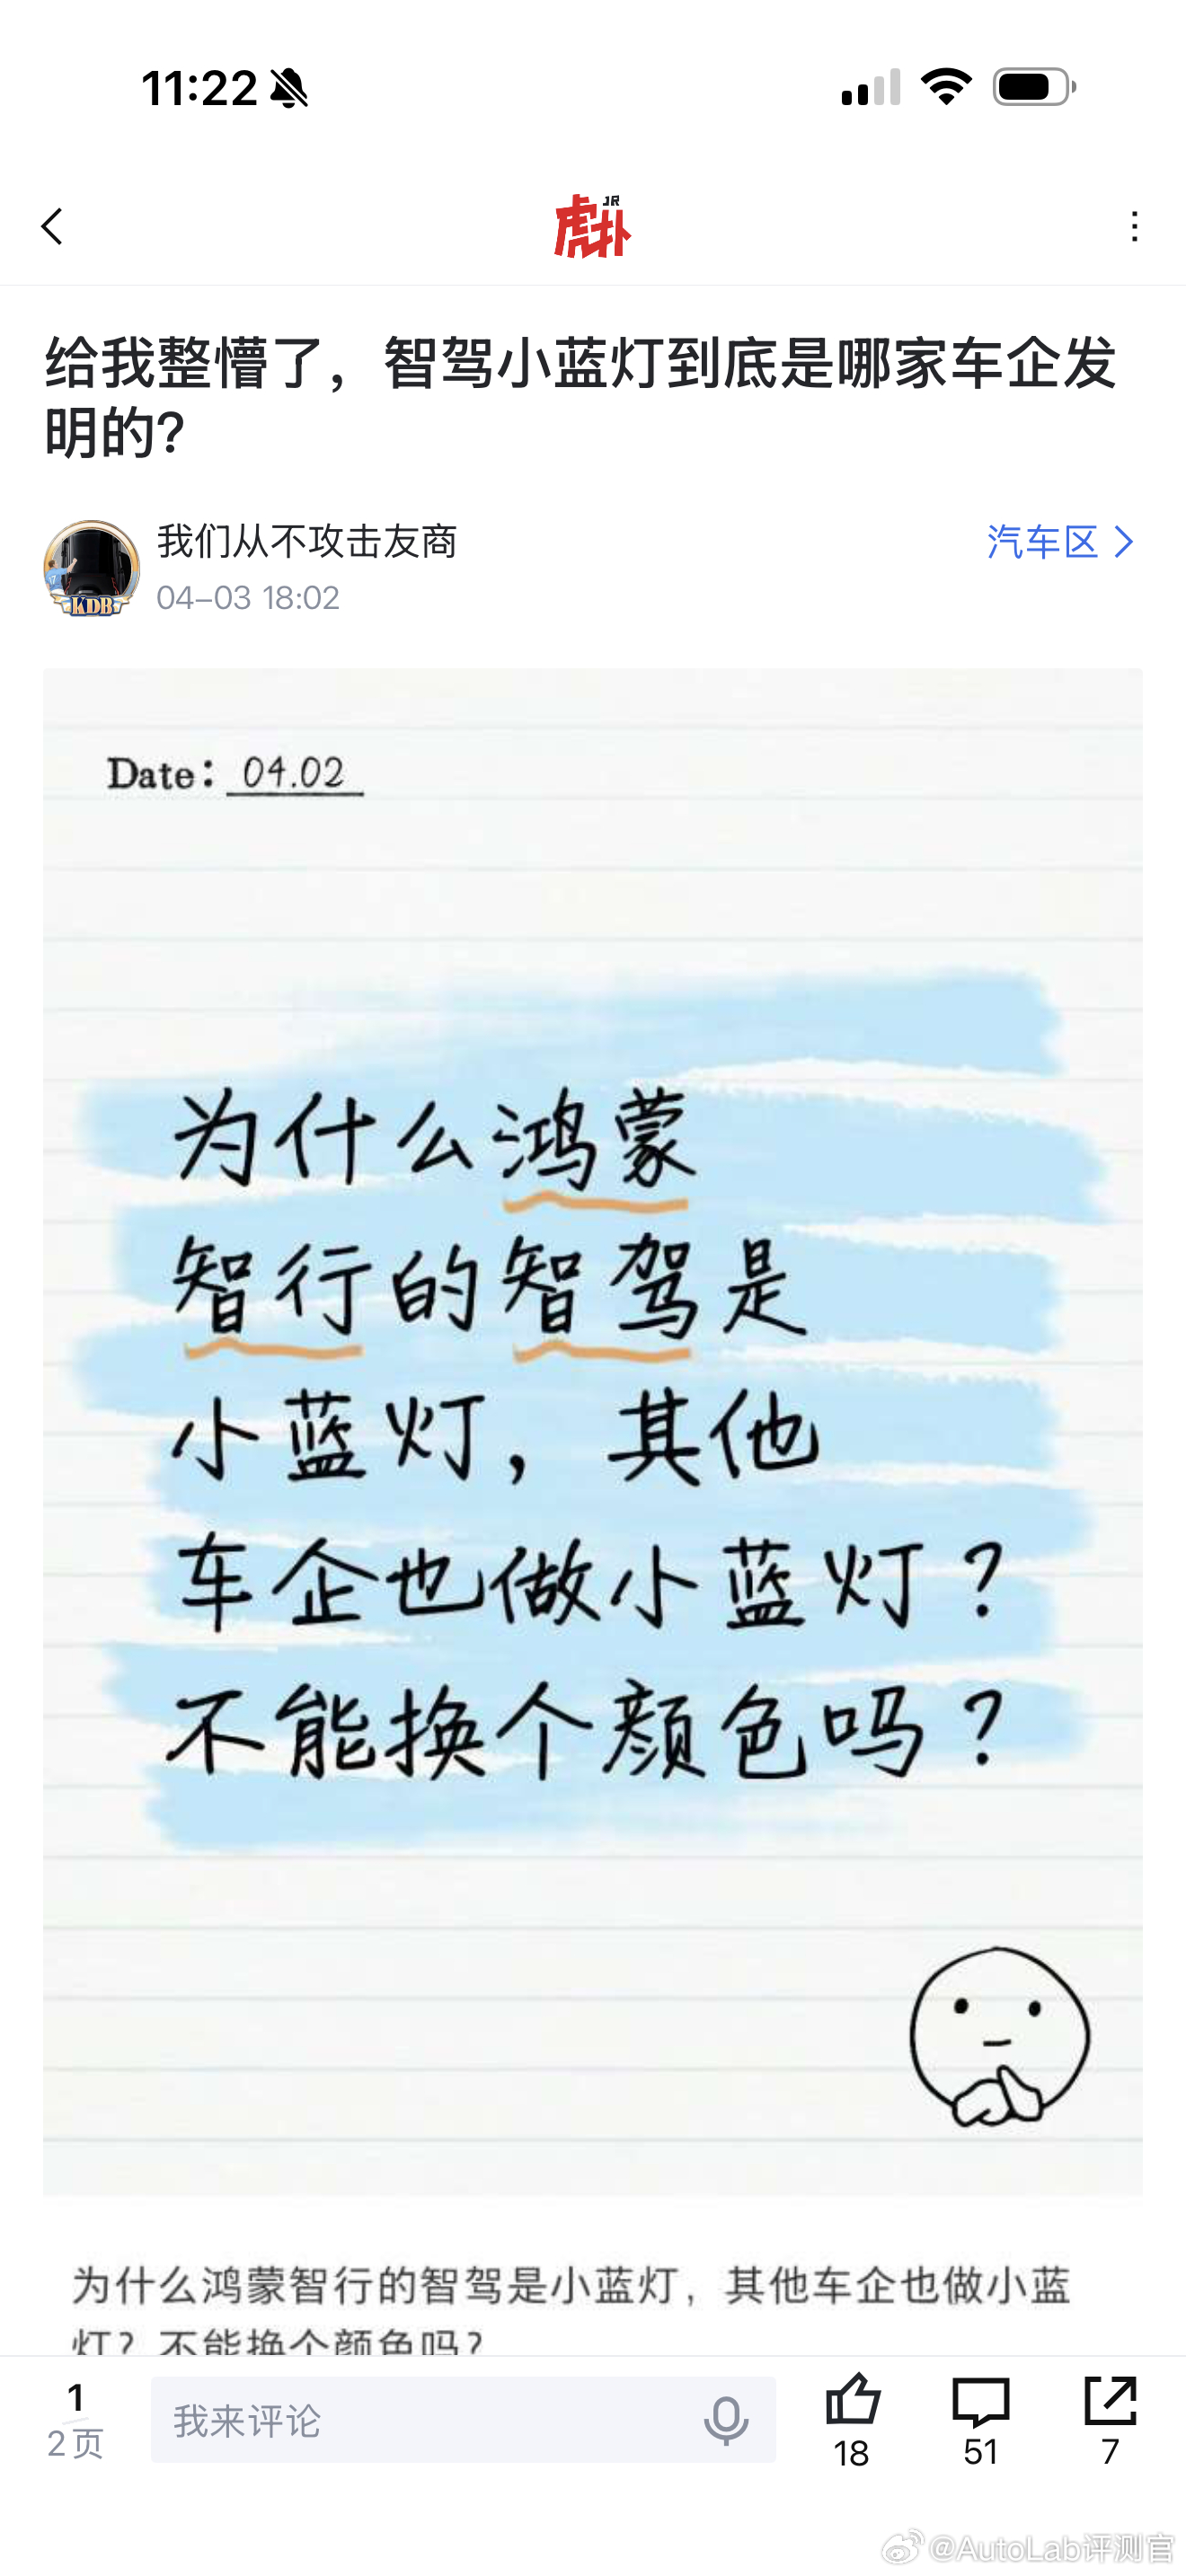 11:22
虎扑JR
给我整懵了，智驾小蓝灯到底是哪家车企发
明的?
我们从不攻击友商
汽车区
04-03 18:02
KDB
Date: 04.02
为什么鸿蒙
智行的智驾是
小蓝灯，其他
车企也做小蓝灯？
不能换个颜色吗？
为什么鸿蒙智行的智驾是小蓝灯，其他车企也做小蓝
灯？不能换个颜色吗？
1
2页
我来评论
18
51
7
@AutoLab评测官